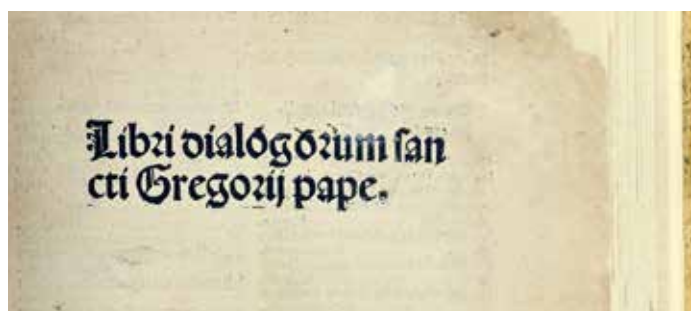 Libri dialogorum san
cti Gregorij pape.